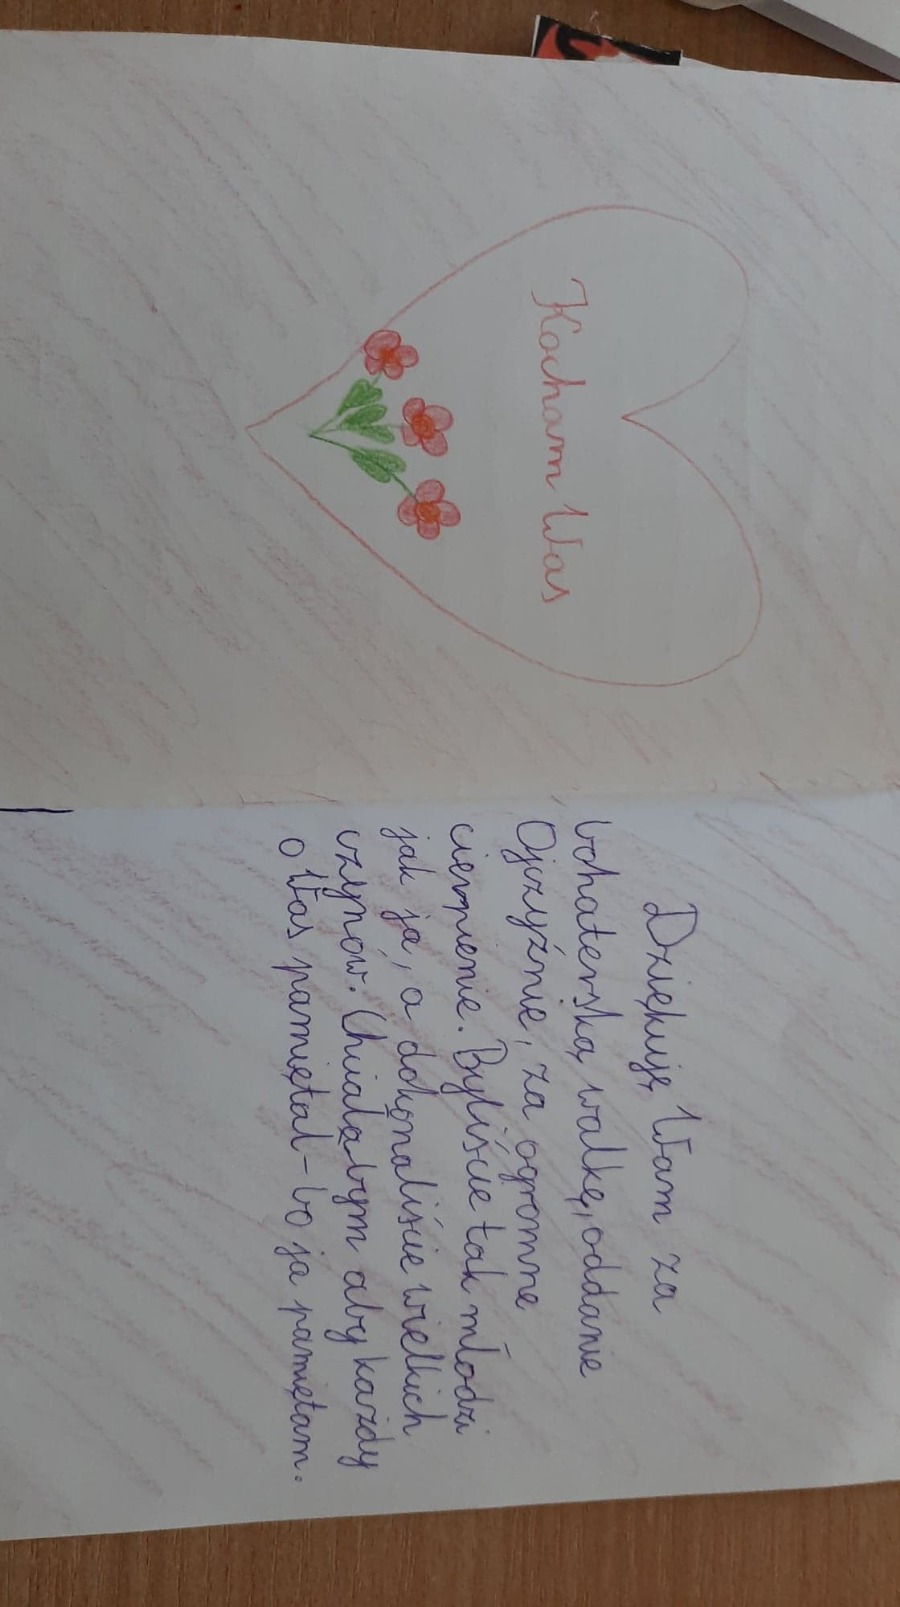 Kocham Was
Dziękuję Wam za
bohaterską walkę, oddanie
Ojczyźnie, za ogromne
cierpienie. Byliście tak młodzi
jak ja, a dokonaliście wielkich
czynów. Chciałabym aby każdy
o Was pamiętał - bo ja pamiętam.